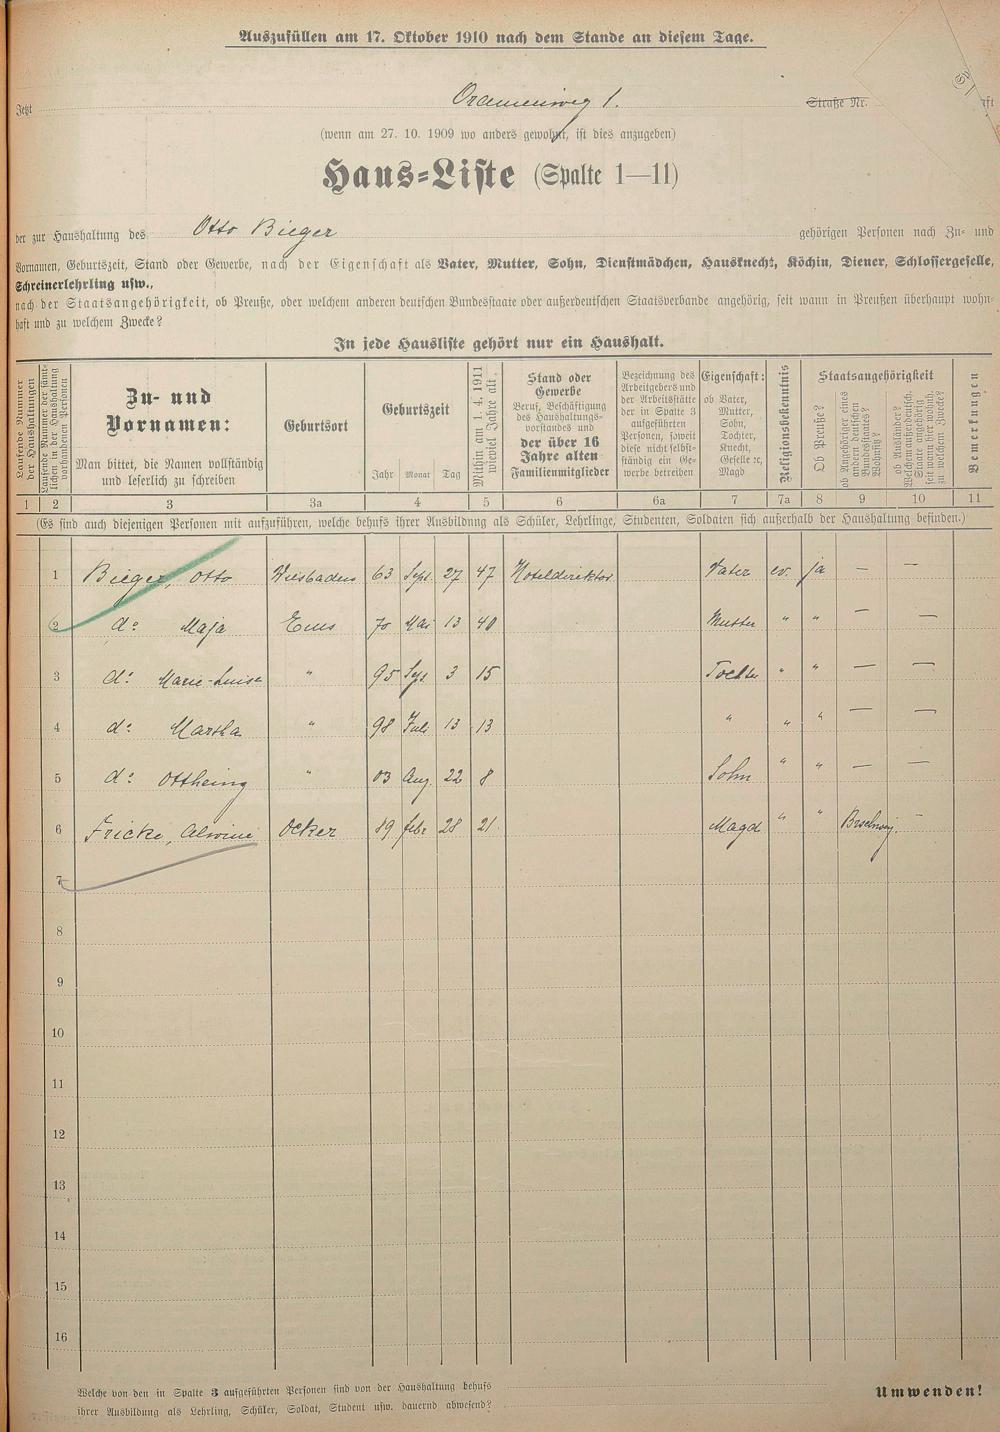 Auszufüllen am 17. Oktober 1910 nach dem Stande an diesem Tage.
Jetzt Oranienweg 1. Straße Nr.
(wenn am 27. 10. 1909 wo anders gewohnt, ist dies anzugeben)
Haus-Liste (Spalte 1—11)
der zur Haushaltung des Otto Bieger gehörigen Personen nach Zu- und
Vornamen, Geburtszeit, Stand oder Gewerbe, nach der Eigenschaft als Vater, Mutter, Sohn, Dienstmädchen, Hausknecht, Köchin, Diener, Schlossergeselle,
Schreinerlehrling usw.,
nach der Staatsangehörigkeit, ob Preuße, oder welchem anderen deutschen Bundesstaate oder außerdeutschen Staatsverbande angehörig, seit wann in Preußen überhaupt wohn-
haft und zu welchem Zwecke?
In jede Hausliste gehört nur ein Haushalt.
Laufende Nummer
der Haushaltungen
Laufende Nummer der sämt-
lichen in der Haushaltung
vorhandenen Personen
Zu- und
Vornamen:
Man bittet, die Namen vollständig
und leserlich zu schreiben
Geburtsort
Geburtszeit
Jahr Monat Tag
Mithin am 1. 4. 1911
wieviel Jahre alt.
Stand oder
Gewerbe
Beruf, Beschäftigung
des Haushaltungs-
vorstandes und
der über 16
Jahre alten
Familienmitglieder
Bezeichnung des
Arbeitgebers und
der Arbeitsstätte
der in Spalte 3
aufgeführten
Personen, soweit
diese nicht selbst-
ständig ein Ge-
werbe betreiben
Eigenschaft:
ob Vater,
Mutter,
Sohn,
Tochter,
Knecht,
Geselle ꝛc,
Magd
Religionsbekenntnis
Staatsangehörigkeit
Ob Preuße?
ob Angehöriger eines
andern deutschen
Bundesstaates?
Wohnsitz?
ob Ausländer?
Welchem außerdeutsch.
Staate angehörig
seit wann hier wohnh.
zu welchem Zwecke?
Bemerkungen
1 2 3 3a 4 5 6 6a 7 7a 8 9 10 11
(Es sind auch diejenigen Personen mit aufzuführen, welche behufs ihrer Ausbildung als Schüler, Lehrlinge, Studenten, Soldaten sich außerhalb der Haushaltung befinden.)
1 Bieger, Otto Wiesbaden 63 Sept. 27 47 Hoteldirektor Vater ev. ja — —
2 do Maja Ems 70 Mai 13 40 Mutter " " — —
3 do Marie-Luise " 95 Sept 3 15 Tochter " " — —
4 do Martha " 98 Juli 13 13 " " " — —
5 do Ottheinz " 03 Aug. 22 8 Sohn " " — —
6 Fricke, Alwine Ocker 89 Febr 28 21 Magd " " Brschweig. -
7
8
9
10
11
12
13
14
15
16
Welche von den in Spalte 3 aufgeführten Personen sind von der Haushaltung behufs
ihrer Ausbildung als Lehrling, Schüler, Soldat, Student usw. dauernd abwesend?
Umwenden!